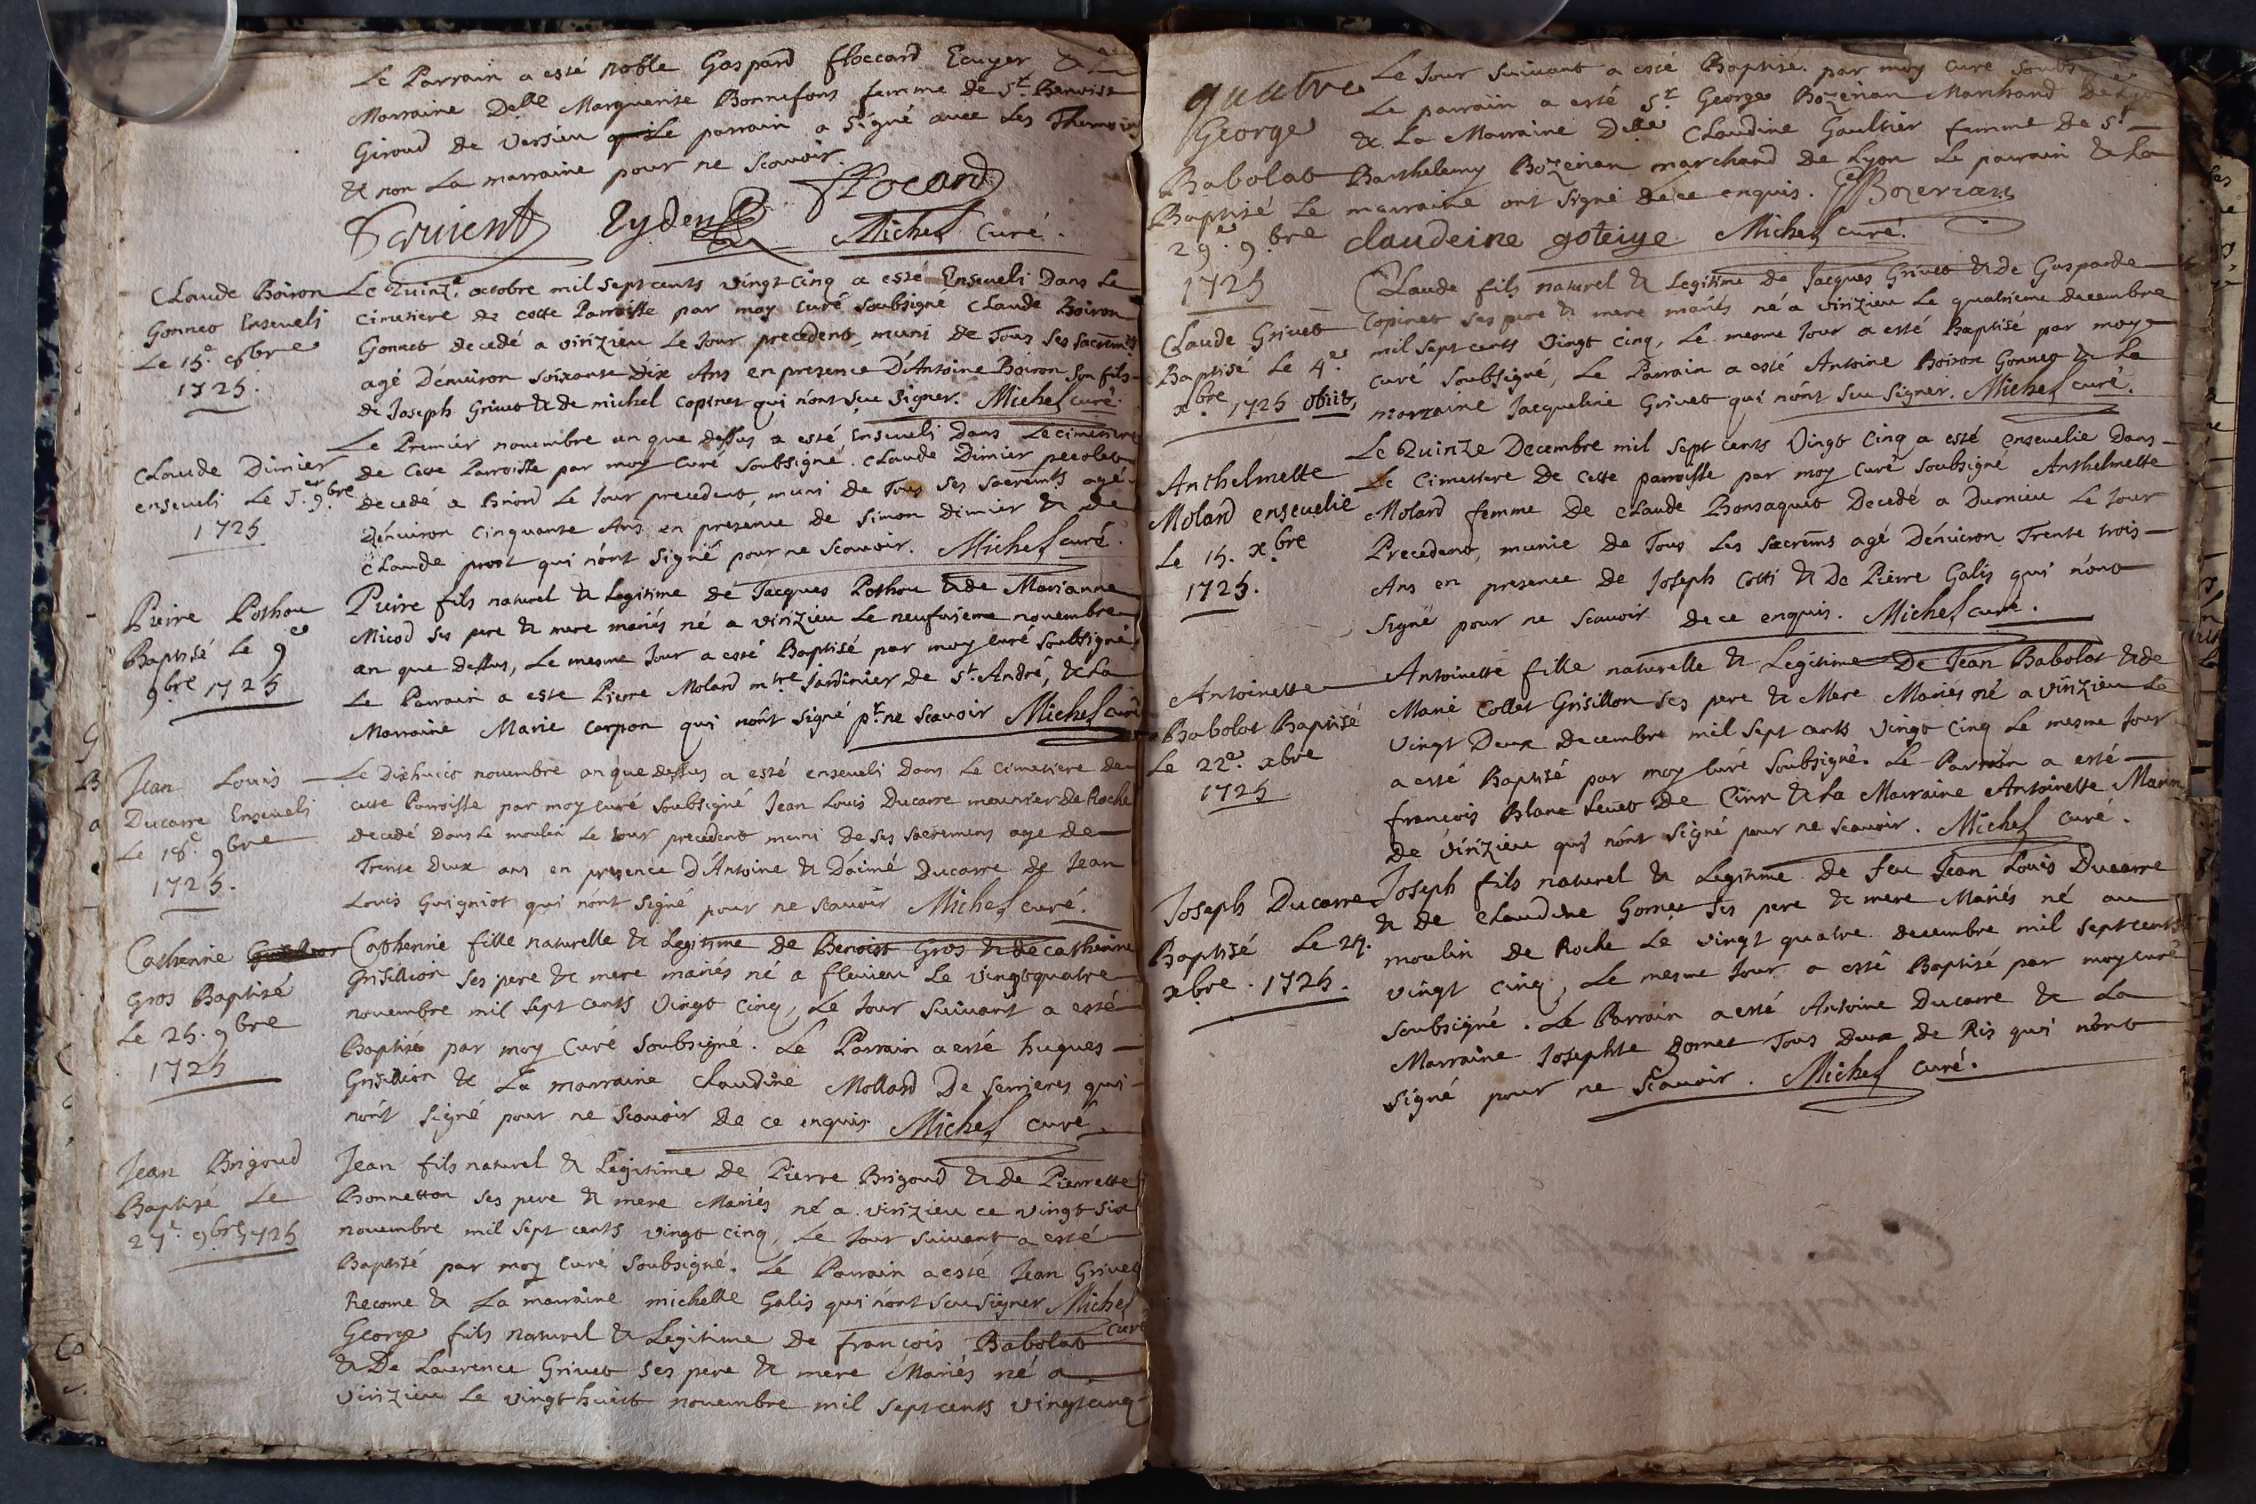 Le Parrain a esté noble Gaspard ffoccard Ecuyer & La
Marraine Delle Marguerite Bonnefons femme de Sr. Benoist
Giroud de Versieu Le parrain a signé avec Les Thermoins
& non La marraine pour ne scavoir.
ffocard
Michel Curé.
Claude Boiron
Gonnet Enseveli
Le 15.e 8bre
1725.
Le Quinz.e octobre mil sept cents vingt cinq a esté Enseveli Dans Le
Cimetiere de cette Parroisse par moy Curé soubsigne Claude Boiron
Gonnet decedé a virizieu Le Jour precedent, muni de Tous ses sacremts
agé D'énviron soixante Dix Ans en presence D'Antoine Boiron son fils
de Joseph Grivet & de michel Copinet qui n'ont sceu signer. Michel curé.
Claude Dimier
enseveli Le J.er 9bre
1725
Le Premier novembre an que dessus a esté Enseveli Dans Le cimetiere
de Cette Parroisse par moy Curé soubsigné. Claude Dimier pecolet
decedé a Briord Le Jour precedent, muni de Tous ses sacremts agé
d'énviron Cinquante Ans en presence de simon dimier & de
Claude prost qui n'ónt signé pour ne scavoir. Michel curé.
Pierre Pothou
Baptisé Le 9e
9bre 1725
Pierre fils naturel & Legitime de Jacques Pothou & de Marianne
Micod ses pere & mere mariés né a virizieu Le neufvieme novembre
an que dessus, Le mesme Jour a esté Baptisé par moy curé soubsigné
Le Parrain a este Pierre Molard mtre Jardinier de St. André, & La
Marraine Marie Carpon qui n'ónt signé pr. ne scavoir Michel curé
Jean Louis
Ducarre Enseveli
Le 18e 9bre
1725.
Le Dixhuict novembre an que dessus a esté enseveli Dans Le Cimetiere de
cette Parroisse par moy curé soubsigné Jean Louis Ducarre meunier de Roche
decedé Dans Le moulin Le Jour precedent muni de ses sacremens age de
Trente Deux ans en presence D'Antoine & D'aimé Ducarre de Jean
Louis Guigniot qui n'ónt signé pour ne scavoir Michel curé.
Catherine
Gros Baptisé
Le 25. 9bre
1725
Catherine fille naturelle & Legitime de Benoist Gros & de catherine
Grisillion ses pere & mere mariés né a flevieu Le vingtquatre
novembre mil sept cents vingt cinq, Le Jour suivant a esté
Baptisé par moy Curé soubsigné. Le Parrain a esté hugues
Grisillion & La marraine Claudine Mollard De serrieres qui
n'ónt signé pour ne scavoir de ce enquis Michel curé
Jean Brigoud
Baptisé Le
27e 9bre 1725
Jean fils naturel & Légitime de Pierre Brigoud & de Pierrette
Bonnetton ses pere & mere Mariés né a virizieu ce vingt six
novembre mil sept cents vingt cinq, Le Jour suivant a esté
Baptisé par moy Curé soubsigné. Le Parrain a esté Jean Grivet
Recome & La marraine michelle Galis qui n'ont sceu signer Michel
curé
George fils naturel & Legitime de françois Babolat
& De Laurence Grivet ses pere & mere Mariés né a
virizieu Le vingthuict novembre mil sept cents vingtcinq
quatre
George
Babolat
Baptisé Le
29.e 9bre
1725
Le Jour suivant a esté Baptisé. par moy curé soubs
Le parrain a esté Sr. George Bozerian Marchand De Lyon
& La Marraine Delle Claudine Gaultier femme de Sr
Barthelemy Bozerian marchand de Lyon Le parrain & La
marraine ont signé de ce enquis. Bozerian
claudeine goteiye Michel curé.
Claude Grivet
Baptisé Le 4.e
xbre 1725 obiit,
Claude fils naturel & Legitime de Jacques Grivet & de Gasparde
Copinet ses pere & mere mariés né a virizieu Le quatrieme decembre
mil sept cents vingt cinq, Le mesme Jour a esté Baptisé par moy
curé soubsigné, Le Parrain a esté Antoine Boiron Gonnet & La
marraine Jacqueline Grivet qui n'ónt sceu signer. Michel curé.
Anthelmette
Molard ensevelie
Le 15. xbre
1725.
Le Quinze Decembre mil sept cents vingt cinq a esté ensevelie Dans
Le Cimetiere de Cette parroisse par moy Curé soubsigné Anthelmette
Molard femme de Claude Bonsaquet Decedé a Durnieu Le Jour
Precedent, munie de Tous Les sacrems agé D'énviron Trente trois
Ans en presence de Joseph Cotti & De Pierre Galis qui n'ónt
signé pour ne scavoir de ce enquis. Michel curé.
Antoinette
Babolat Baptisé
Le 22.e xbre
1725
Antoinette fille naturelle & Legitime De Jean Babolat & de
Marie Collet Grisillon ses pere & Mere Mariés né a virizieu Le
vingt Deux decembre mil sept cents vingt cinq Le mesme Jour
a esté Baptisé par moy Curé soubsigné. Le Parrain a esté
françois Blanc Levet De Cinn & La Marraine Antoinette Marin
de virizieu qui n'ónt signé pour ne scavoir. Michel curé.
Joseph Ducarre
Baptisé Le 24.
xbre. 1725.
Joseph fils naturel & Legitime de feu Jean Louis Ducarre
& de Claudine Gornet ses pere & mere Mariés né au
moulin de Roche Le vingt quatre decembre mil sept cents
vingt cinq, Le mesme Jour a esté Baptisé par moy curé
soubsigné. Le Parrain a esté Antoine Ducarre & La
Marraine Josephte gornet Tous Deux de Ris qui n'ónt
signé pour ne scavoir. Michel curé.